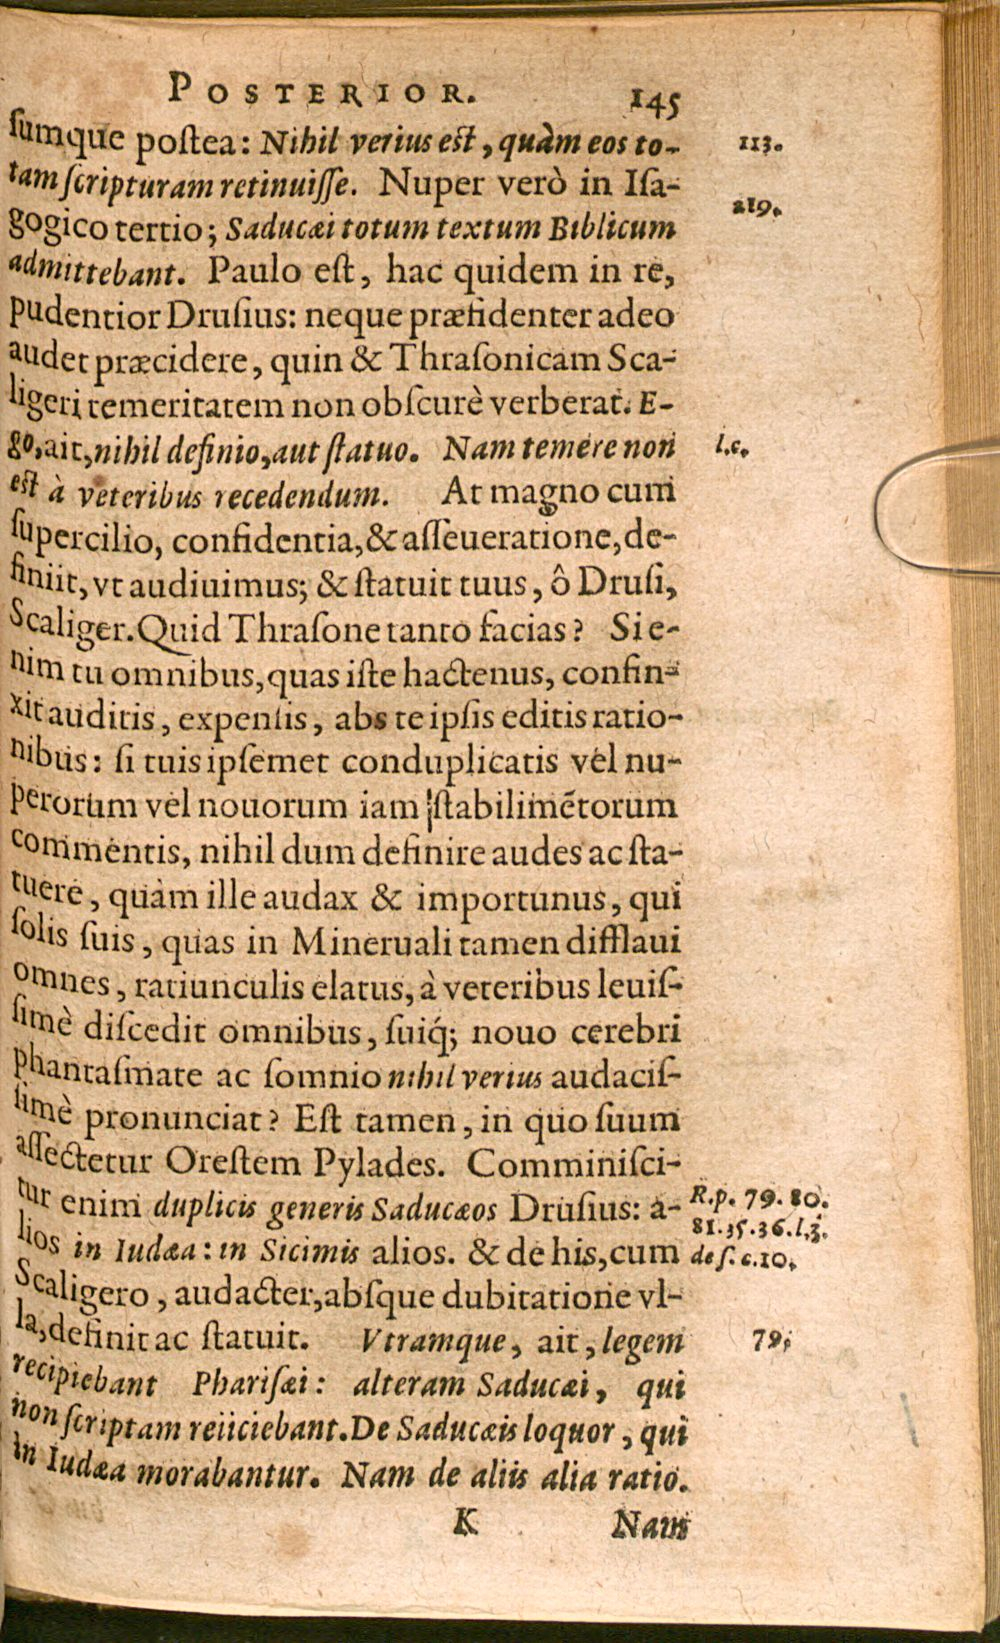 POSTERIOR. 145
ſumque poſtea: Nihil verius eſt, quàm eos to- 113.
tam ſcripturam retinuiſſe. Nuper verò in Iſa-
gogico tertio; Saducæi totum textum Biblicum 219.
admittebant. Paulo eſt, hac quidem in re,
pudentior Druſius: neque præfidenter adeo
audet præcidere, quin & Thraſonicam Sca-
ligeri temeritatem non obſcurè verberat. E-
go, ait, nihil definio, aut ſtatuo. Nam temere non l.c.
eſt à veteribus recedendum. At magno cum
ſupercilio, confidentia, & aſſeueratione, de-
finiit, vt audiuimus; & ſtatuit tuus, ô Druſi,
Scaliger. Quid Thraſone tanto facias? Si e-
nim tu omnibus, quas iſte hactenus, confin-
xit auditis, expenſis, abs te ipſis editis ratio-
nibus: ſi tuis ipſemet conduplicatis vel nu-
perorum vel nouorum iam ſtabilimẽtorum
commentis, nihil dum definire audes ac ſta-
tuere, quàm ille audax & importunus, qui
ſolis ſuis, quas in Mineruali tamen difflaui
omnes, ratiunculis elatus, à veteribus leuiſ-
ſimè diſcedit omnibus, ſuiq́; nouo cerebri
phantaſmate ac ſomnio nihil verius audaciſ-
ſimè pronunciat? Eſt tamen, in quo ſuum
aſſectetur Oreſtem Pylades. Comminiſci-
tur enim duplicis generis Saducæos Druſius: a- R.p. 79. 80.
81.35.36.l.3.
lios in Iudæa: in Sicimis alios. & de his, cum de ſ. c.10.
Scaligero, audacter, abſque dubitatione vl-
la, definit ac ſtatuit. Vtramque, ait, legem 79.
recipiebant Phariſæi: alteram Saducæi, qui
non ſcriptam reiiciebant. De Saducæis loquor, qui
in Iudæa morabantur. Nam de aliis alia ratio.
K Nam